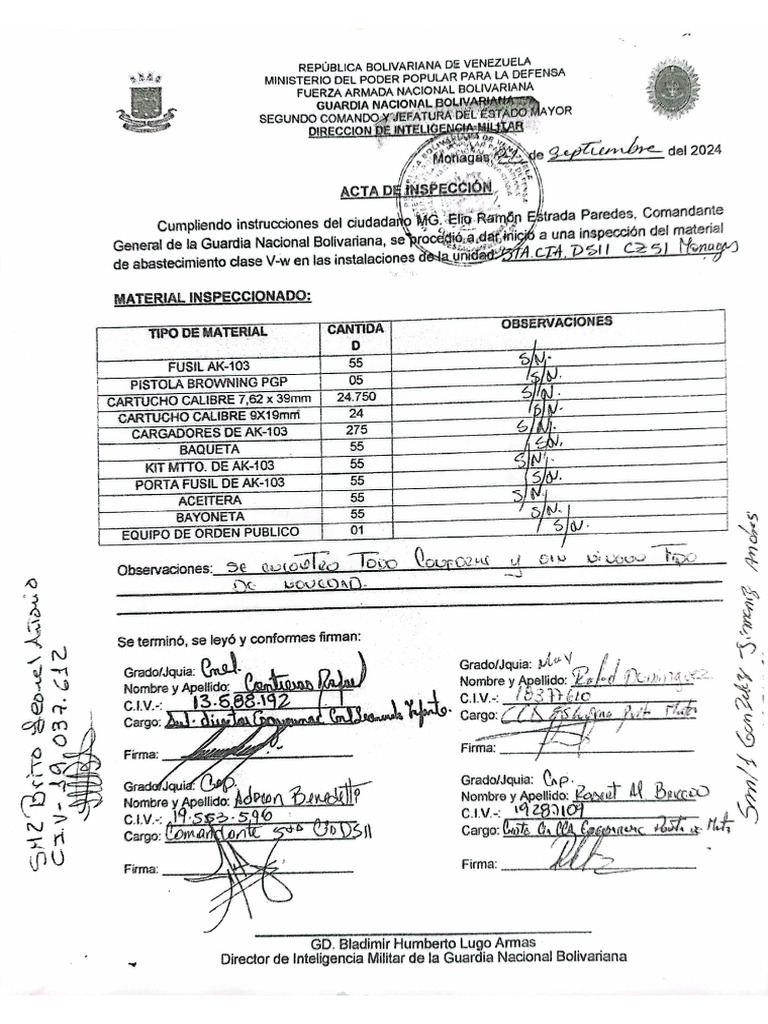 REPÚBLICA BOLIVARIANA DE VENEZUELA
MINISTERIO DEL PODER POPULAR PARA LA DEFENSA
FUERZA ARMADA NACIONAL BOLIVARIANA
GUARDIA NACIONAL BOLIVARIANA
SEGUNDO COMANDO Y JEFATURA DEL ESTADO MAYOR
DIRECCION DE INTELIGENCIA MILITAR
Monagas, de Septiembre del 2024
ACTA DE INSPECCIÓN
Cumpliendo instrucciones del ciudadano MG. Elio Ramón Estrada Paredes, Comandante
General de la Guardia Nacional Bolivariana, se procedió a dar inicio a una inspección del material
de abastecimiento clase V-w en las instalaciones de la unidad: 5TA.CIA. D511 CZ51 Monagas
MATERIAL INSPECCIONADO:
TIPO DE MATERIAL CANTIDA
D OBSERVACIONES
FUSIL AK-103 55 S/N.
PISTOLA BROWNING PGP 05 S/N.
CARTUCHO CALIBRE 7,62 x 39mm 24.750 S/N.
CARTUCHO CALIBRE 9X19mm 24 S/N.
CARGADORES DE AK-103 275 S/N.
BAQUETA 55 S/N.
KIT MTTO. DE AK-103 55 S/N.
PORTA FUSIL DE AK-103 55 S/N.
ACEITERA 55 S/N.
BAYONETA 55 S/N.
EQUIPO DE ORDEN PUBLICO 01 S/N.
Observaciones: Se encontro Todo Conforme y sin ningun Tipo
de novedad.
Se terminó, se leyó y conformes firman:
Grado/Jquia: Cnel.
Nombre y Apellido: Contreras Rafael
C.I.V.-: 13.588.192
Cargo:
Firma:
Grado/Jquia: May
Nombre y Apellido: Rafael Dominguez
C.I.V.-: 18377610
Cargo:
Firma:
Grado/Jquia: Cap.
Nombre y Apellido: Adrian Benedetto
C.I.V.-: 19.553.596
Cargo: Comandante 5ta Cia D511
Firma:
Grado/Jquia: Cap.
Nombre y Apellido: Robert
C.I.V.-: 19287109
Cargo:
Firma:
SM2 Brito Leonel Antonio
C.I.V- 19 037.612
Sm/1 Gonzalez Jimenez Andres
GD. Bladimir Humberto Lugo Armas
Director de Inteligencia Militar de la Guardia Nacional Bolivariana